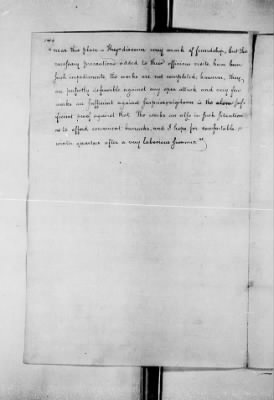 near this place — They discover very much of friendship, but the
necessary precautions added to their officious visits have been
such impediments, the works are not completed; however, they
are perfectly defensible against any open attack and very few
weeks are sufficient against surprise
against that. The works are also in such situation
as to afford convenient barracks, and I hope for comfortable
winter quarters after a very laborious summer."